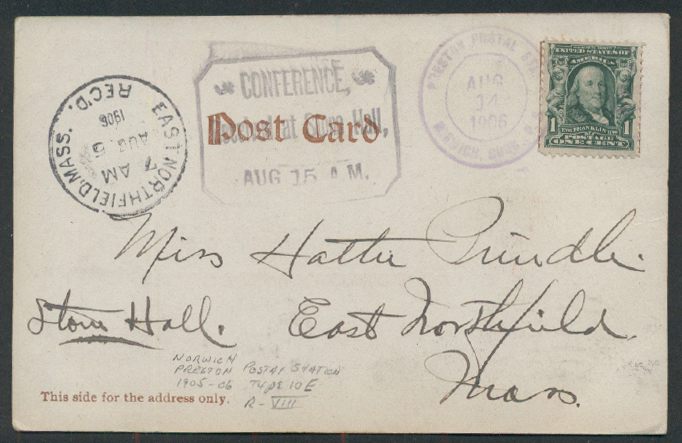 CONFERENCE,
at Hall,
AUG 15 A.M.
Post Card
EAST NORTHFIELD, MASS.
7 AM
AUG 15
1906
REC'D.
PRESTON POSTAL STA.
AUG
14
1906
NORWICH, CONN.
UNITED STATES OF
AMERICA
FRANKLIN
1 POSTAGE 1
ONE CENT
Miss Hattie Prindle.
Stone Hall. East Northfield.
Mass.
NORWICH
PRESTON POSTAL STATION
1905-06 TYPE 10E
R-VIII
This side for the address only.